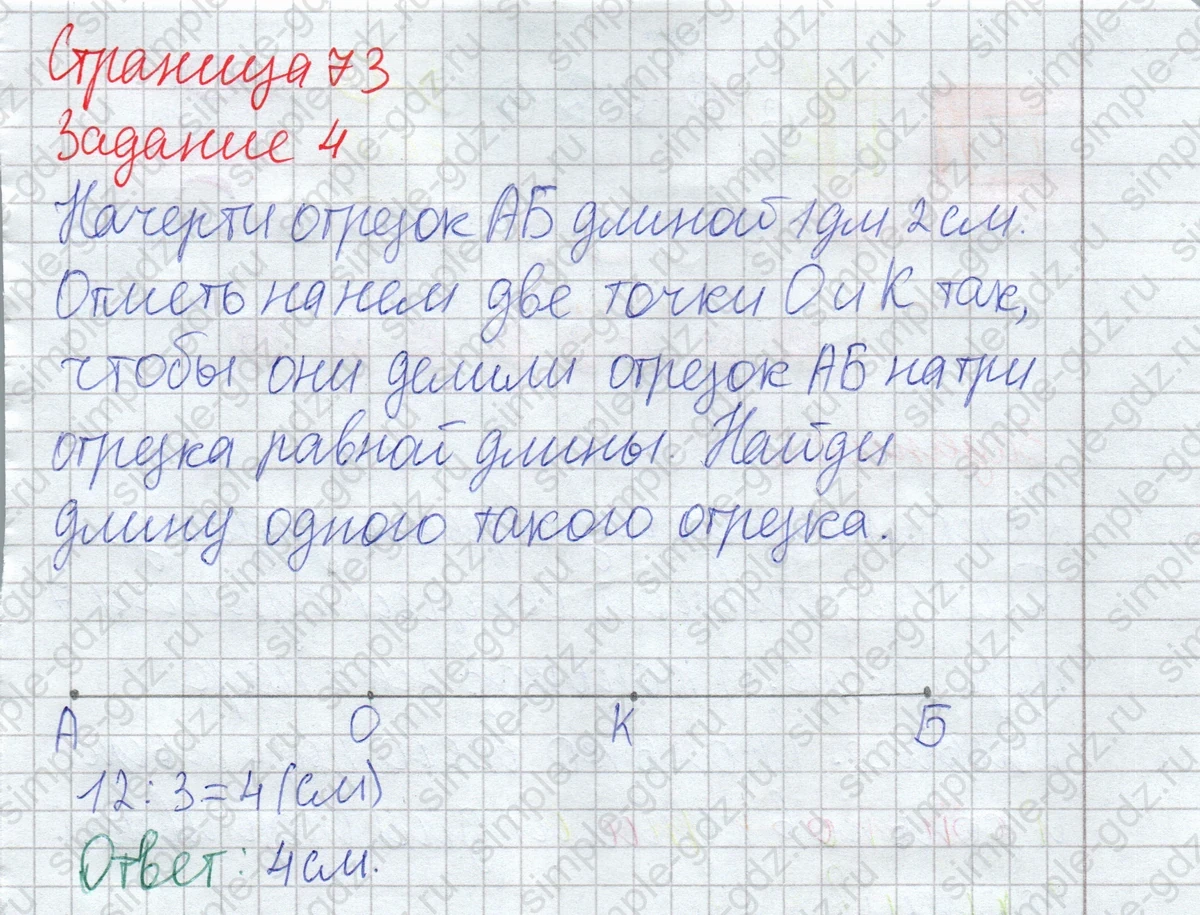 Страница 73
Задание 4
Начерти отрезок АБ длиной 1дм 2см.
Отметь на нем две точки О и К так,
чтобы они делили отрезок АБ на три
отрезка равной длины. Найди
длину одного такого отрезка.
А О К Б
12:3=4(см)
Ответ: 4см.
simple-gdz.ru